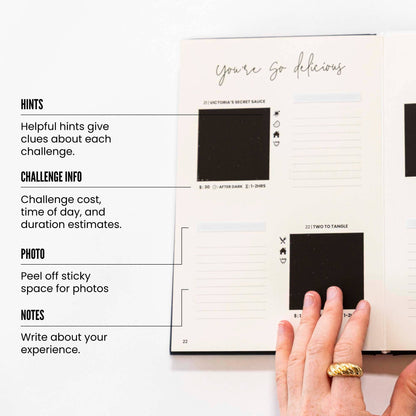 You're so delicious
21 | VICTORIA'S SECRET SAUCE
HINTS
Helpful hints give
clues about each
challenge.
CHALLENGE INFO
$: 30 : AFTER DARK : 1-2HRS
Challenge cost,
time of day, and
duration estimates.
22 | TWO TO TANGLE
PHOTO
Peel off sticky
space for photos
NOTES
Write about your
experience.
22